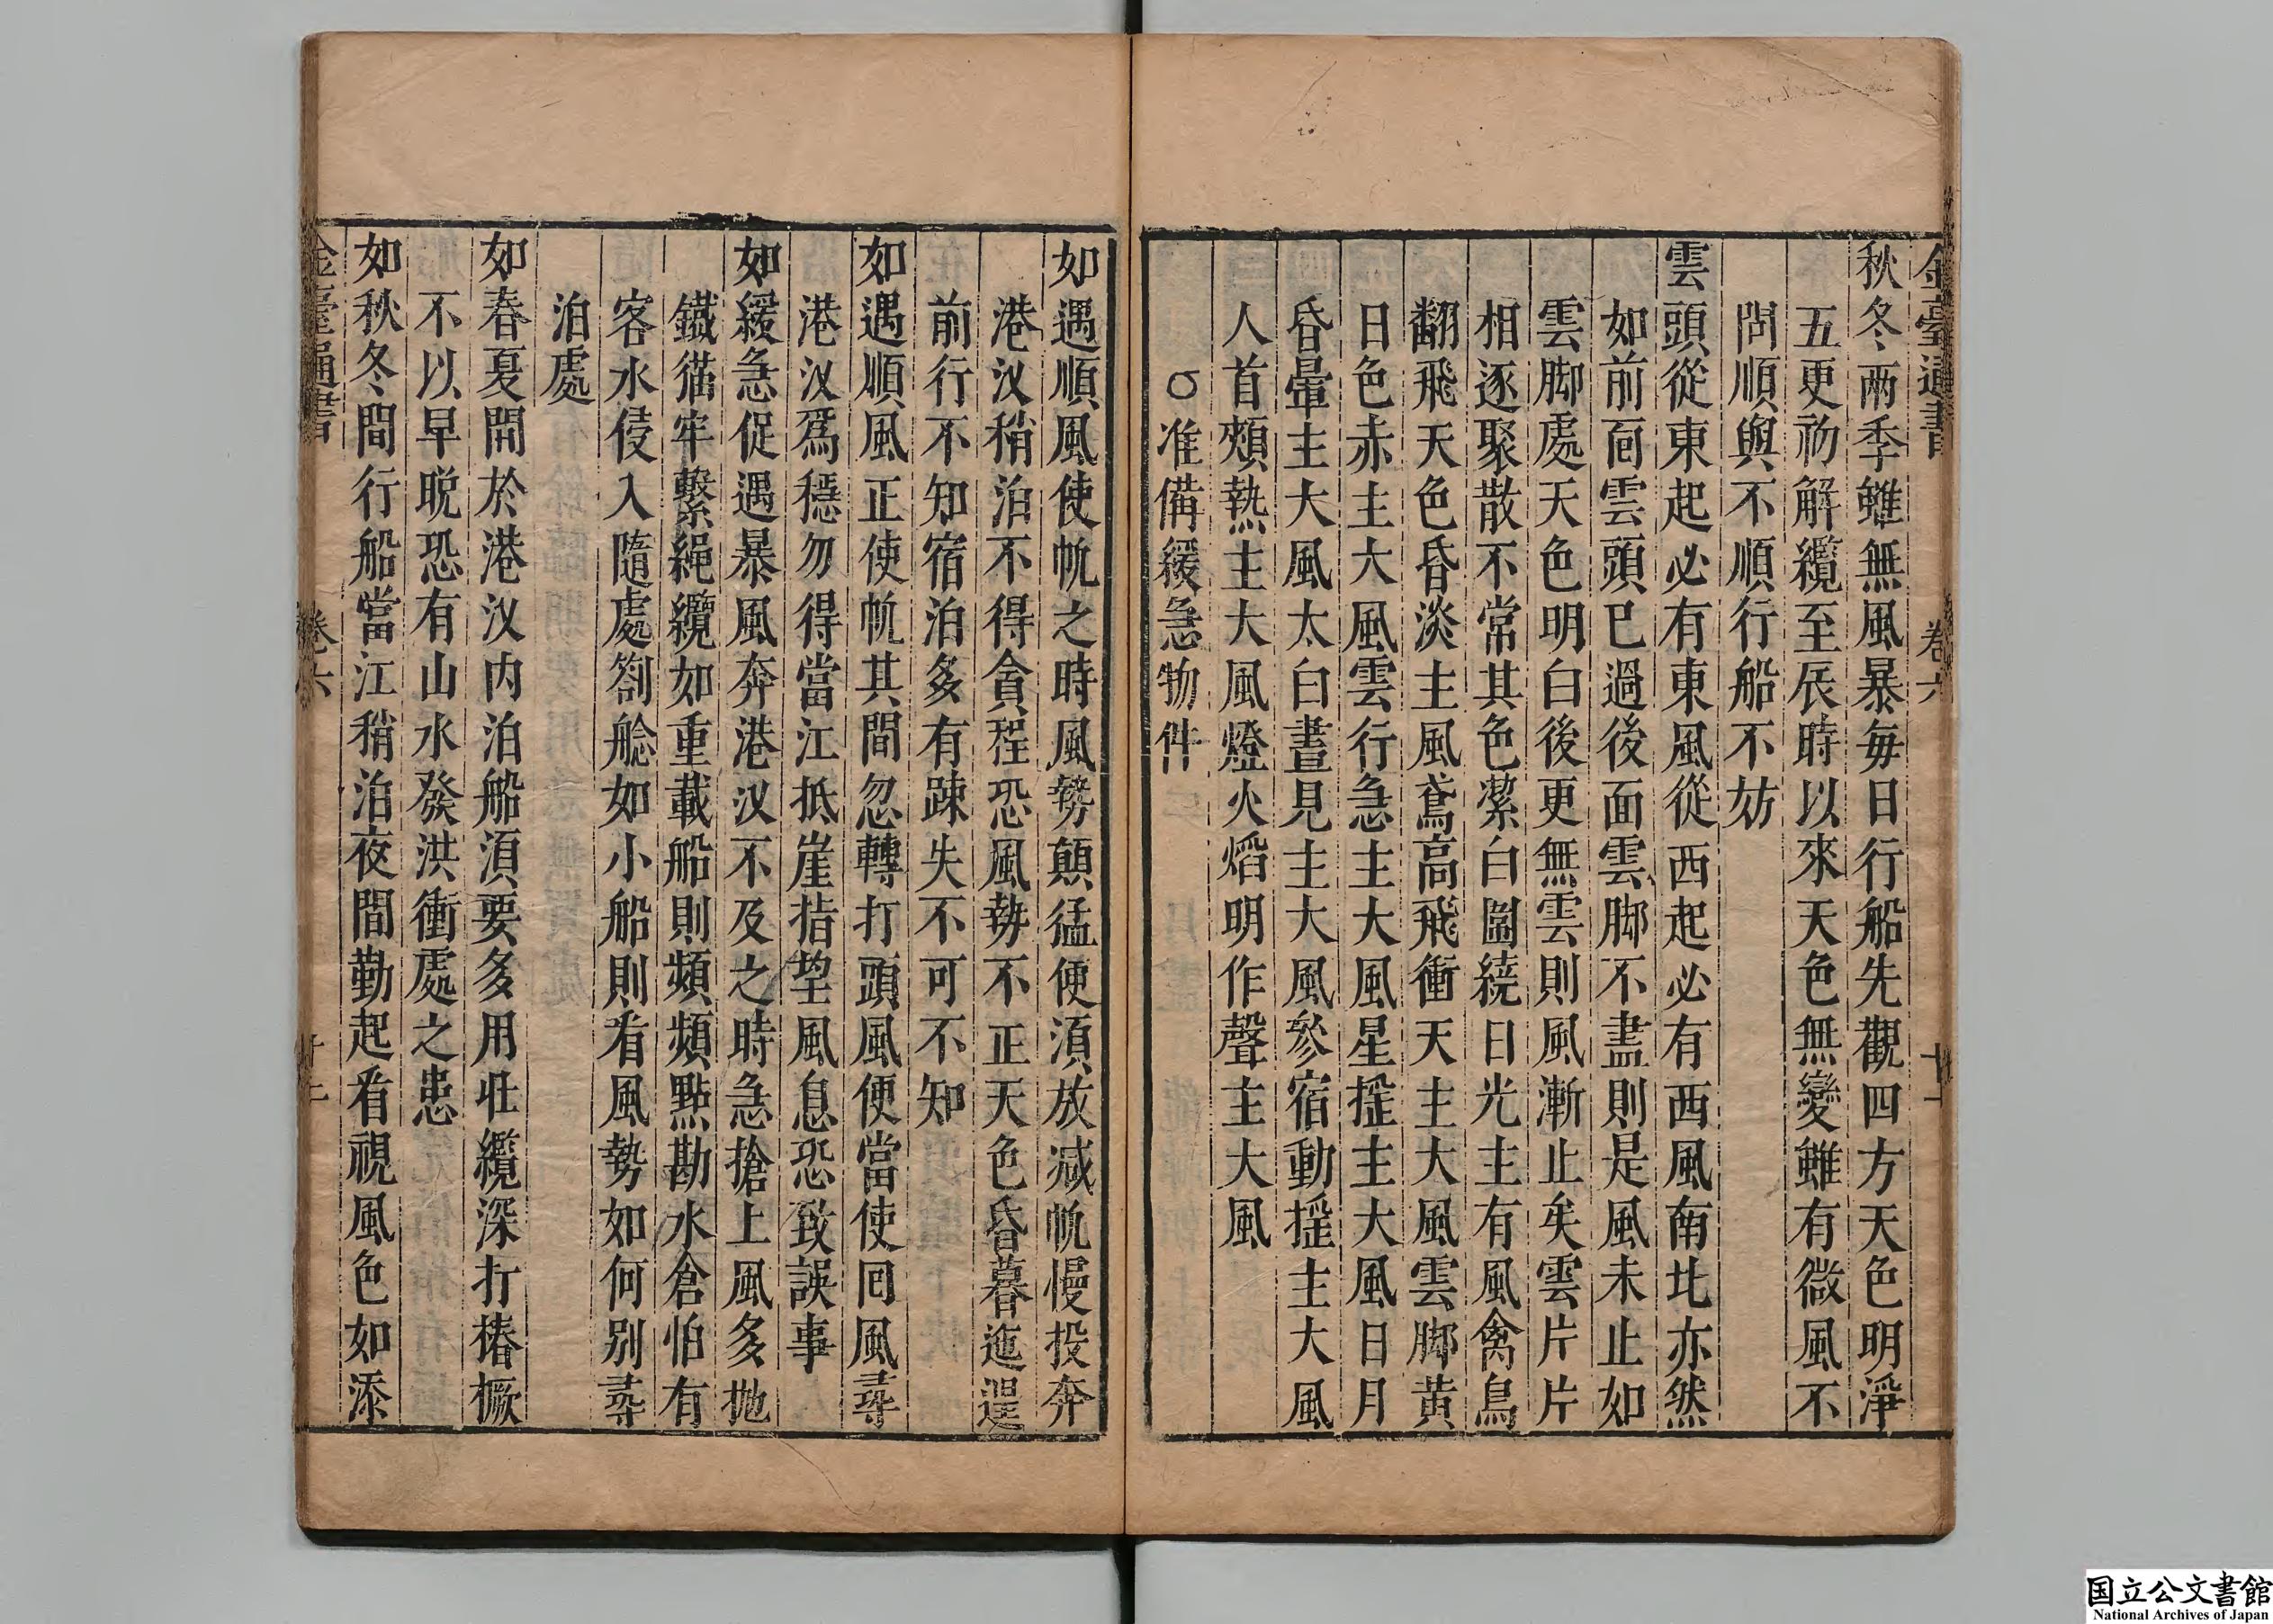 金臺通書 卷六
秋冬兩季雖無風暴每日行船先觀四方天色明淨
五更初解纜至辰時以來天色無變雖有微風不
問順與不順行船不妨
雲頭從東起必有東風從西起必有西風南北亦然
如前面雲頭已過後面雲脚不盡則是風未止如
雲脚處天色明白後更無雲則風漸止矣雲片片
相逐聚散不常其色潔白圍繞日光主有風禽鳥
翻飛天色昏淡主風鳶高飛衝天主大風雲脚黄
日色赤主大風雲行急主大風星揺主大風日月
昏暈主大風太白晝見主大風參宿動揺主大風
人首頰熱主大風燈火熖明作聲主大風
○准備緩急物件
如遇順風使帆之時風勢顛猛便須放减帆慢投奔
港汊稍泊不得貪程恐風勢不正天色昏暮迤逞
前行不知宿泊多有踈失不可不知
如遇順風正使帆其間忽轉打頭風便當使囘風尋
港汊爲穩勿得當江抵崖指望風息恐致誤事
如緩急促遇暴風奔港汊不及之時急搶上風多抛
鐵猫牢繫繩纜如重載船則頻頻點勘水倉怕有
客水侵入隨處劄艌如小船則看風勢如何别尋
泊處
如春夏開於港汊内泊船須要多用壯纜深打樁橛
不以早晚恐有山水發洪衝處之患
如秋冬間行船當江稍泊夜間勤起看視風色如添
金臺通書 卷六
国立公文書館
National Archives of Japan